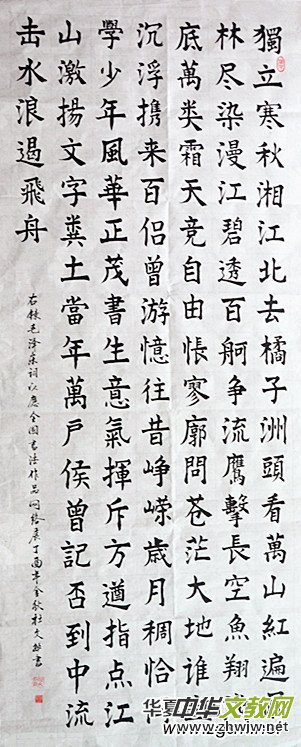 獨立寒秋湘江北去橘子洲頭看萬山紅遍
林尽染漫江碧透百舸争流鷹擊長空魚翔
底萬类霜天竞自由悵寥廓問苍茫大地谁
沉浮携来百侣曾游憶往昔峥嵘歲月稠恰
學少年風華正茂書生意氣揮斥方遒指点江
山激揚文字糞土當年萬户侯曾記否到中流
击水浪遏飛舟
右録毛泽东词以應全国書法作品网络展丁酉年金秋杜文書
华夏中华文教网
www.zhwjw.net